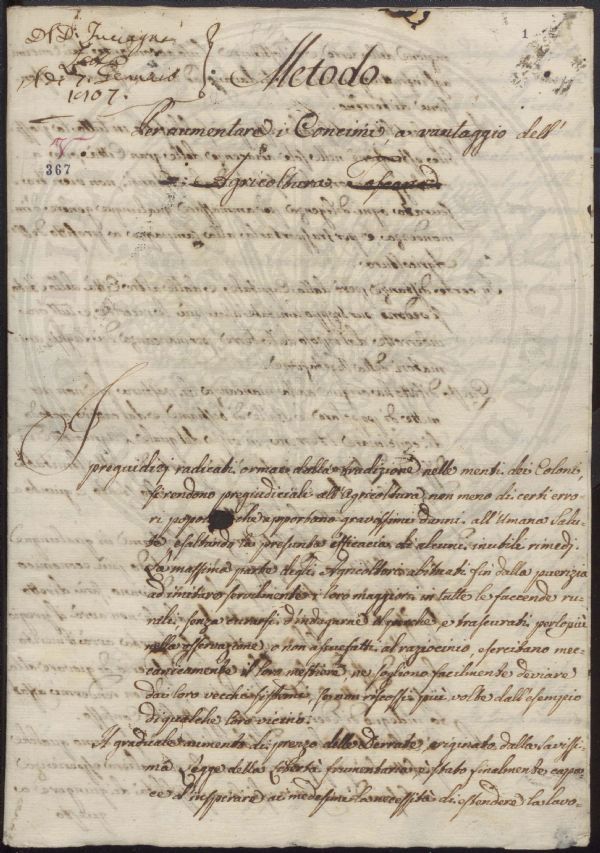 1
A Dì
Gennaio
1807.
367
Metodo
Per aumentare i Concimi a vantaggio dell'
Agricoltura
I pregiudizj radicati ormai dalla tradizione nelle menti dei Coloni
si rendono pregiudiciali all'Agricoltura non meno di certi erro-
ri che apportano gravissimi danni all'Umana Salu-
te esaltando la presunta efficacia di alcuni inutili rimedj.
La massima parte degli Agricoltori abituati fin dalla puerizia
ad imitare servilmente i loro maggiori in tutte le faccende ru-
rali, senza curarsi d'indagarne il perchè, e trascurati perlopiù
nella osservazione, o non assuefatti al raziocinio, esercitano mec-
canicamente il loro mestiere, ne sogliono facilmente deviare
dai loro vecchi sistemi, se non riscossi più volte dall'esempio
di qualche loro vicino.
Il graduale aumento di prezzo delle derrate originato dalla savissi-
ma Legge della Libertà frumentaria è stato finalmente capa-
ce d'inspirare ai medesimi la necessità di estendere la lavo-